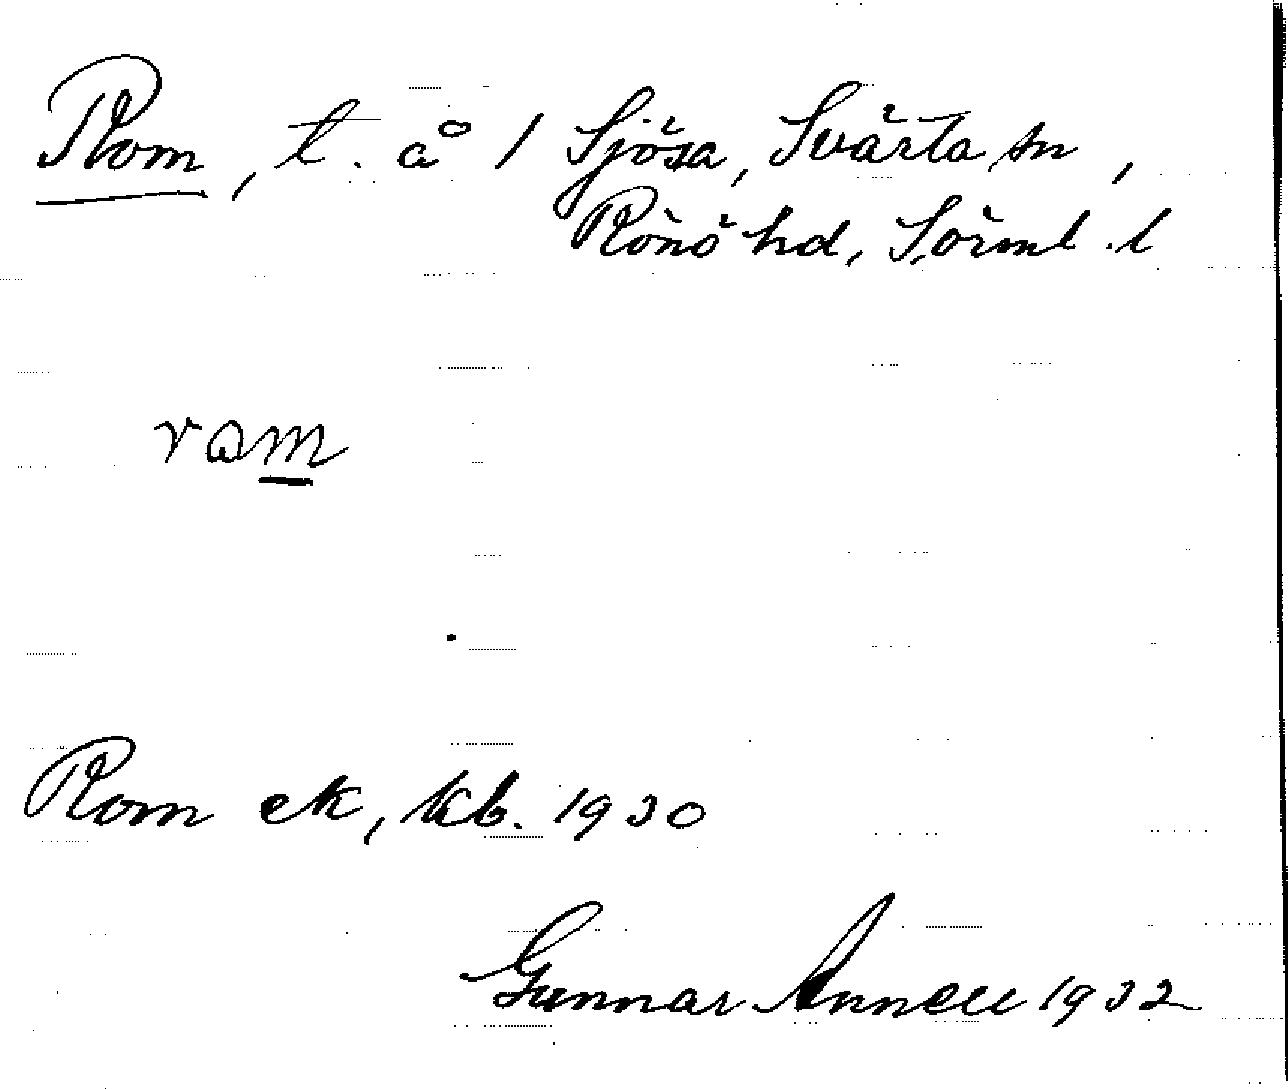 Rom, t. å / Sjösa, Svärta sn,
Rönö hd, Sörml. l
Rom ek, kb. 1930
Gunnar Annell 1932